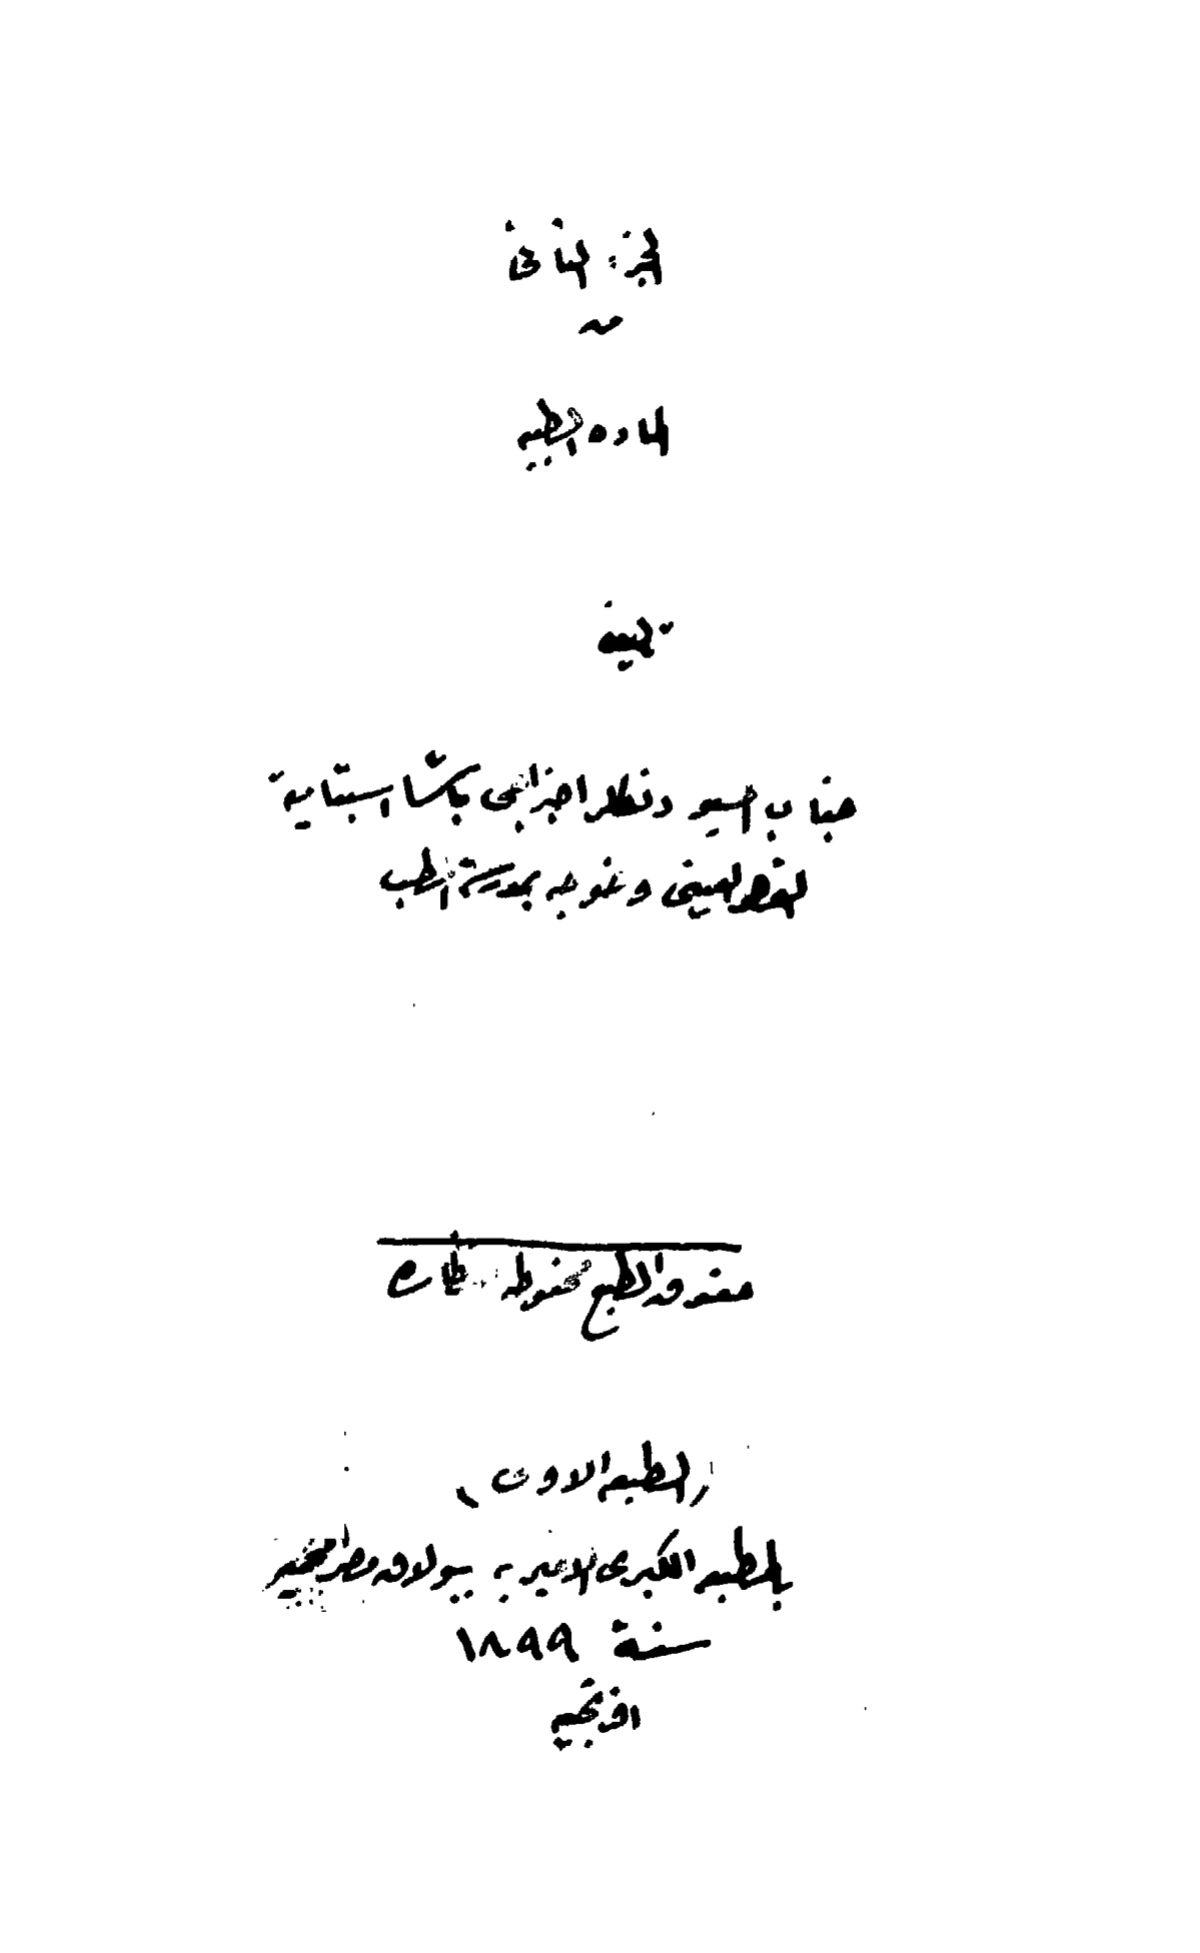 الجزء الثانى
من
المادة الطبيه
تأليف
جناب المسيو ونظلر اجزاجى باشا اسبتاليه
القصر العينى وخوجه بمدرسة الطب
حقوق الطبع محفوظه
(الطبعه الاولى)
بالمطبعه الكبرى الاميريه ببولاق مصر المحميه
سنة ١٨٩٩
افرنجيه